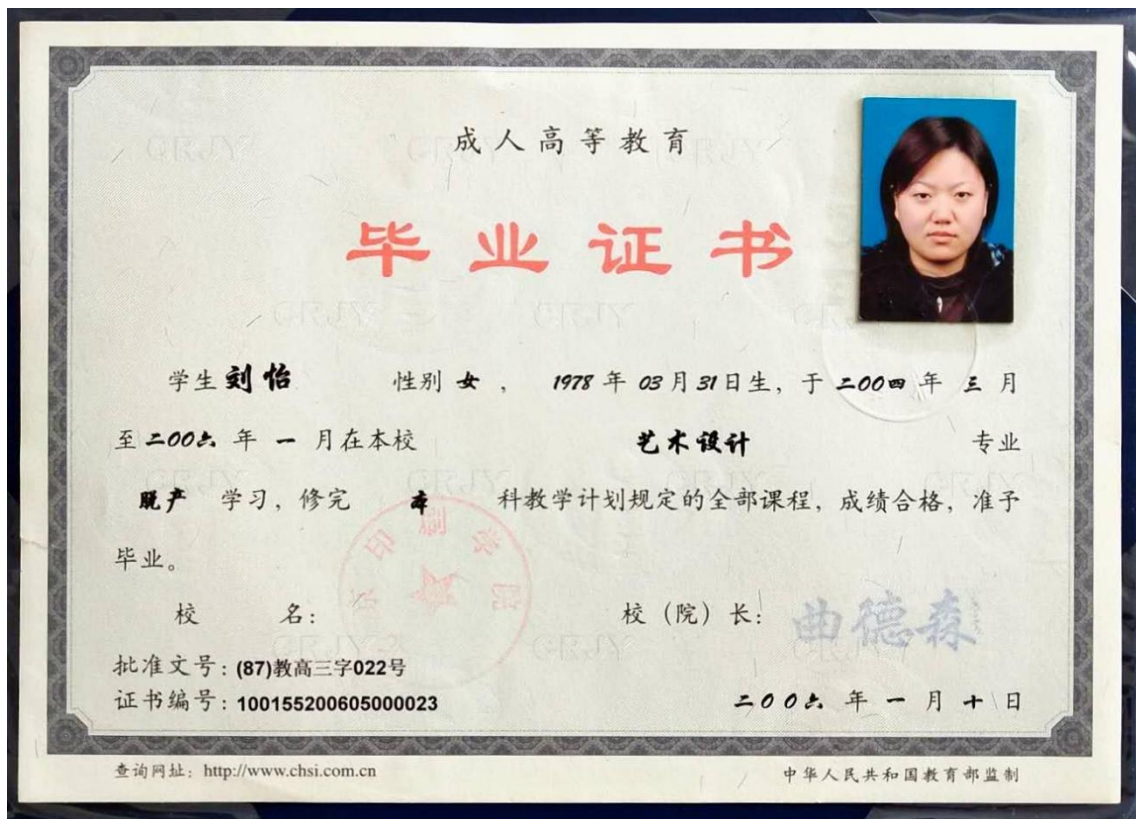 成人高等教育
毕业证书
学生 刘怡 性别 女 , 1978 年 03 月 31 日生, 于 二00四 年 三 月
至 二00六 年 一 月在本校 艺术设计 专业
脱产 学习, 修完 本 科教学计划规定的全部课程, 成绩合格, 准予
毕业。
校 名: 校 (院) 长: 曲德森
印刷学院
批准文号: (87)教高三字022号
证书编号: 100155200605000023 二00六 年 一 月 十 日
查询网址: http://www.chsi.com.cn 中华人民共和国教育部监制